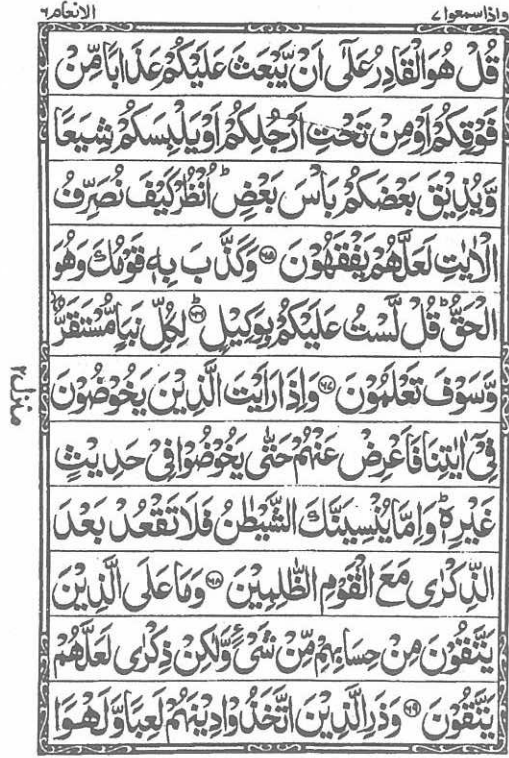 واذاسمعوا ٧
الانعام ٦
قُلْ هُوَ الْقَادِرُ عَلٰٓى اَنْ يَّبْعَثَ عَلَيْكُمْ عَذَابًا مِّنْ
فَوْقِكُمْ اَوْ مِنْ تَحْتِ اَرْجُلِكُمْ اَوْ يَلْبِسَكُمْ شِيَعًا
وَّيُذِيْقَ بَعْضَكُمْ بَاْسَ بَعْضٍ ؕ اُنْظُرْ كَيْفَ نُصَرِّفُ
الْاٰيٰتِ لَعَلَّهُمْ يَفْقَهُوْنَ ﴿۶۵﴾ وَكَذَّبَ بِهٖ قَوْمُكَ وَهُوَ
الْحَقُّ ؕ قُلْ لَّسْتُ عَلَيْكُمْ بِوَكِيْلٍ ﴿۶۶﴾ لِكُلِّ نَبَاٍ مُّسْتَقَرٌّ
وَّسَوْفَ تَعْلَمُوْنَ ﴿۶۷﴾ وَاِذَا رَاَيْتَ الَّذِيْنَ يَخُوْضُوْنَ
فِيْٓ اٰيٰتِنَا فَاَعْرِضْ عَنْهُمْ حَتّٰى يَخُوْضُوْا فِيْ حَدِيْثٍ
غَيْرِهٖ ؕ وَاِمَّا يُنْسِيَنَّكَ الشَّيْطٰنُ فَلَا تَقْعُدْ بَعْدَ
الذِّكْرٰى مَعَ الْقَوْمِ الظّٰلِمِيْنَ ﴿۶۸﴾ وَمَا عَلَى الَّذِيْنَ
يَتَّقُوْنَ مِنْ حِسَابِهِمْ مِّنْ شَيْءٍ وَّلٰكِنْ ذِكْرٰى لَعَلَّهُمْ
يَتَّقُوْنَ ﴿۶۹﴾ وَذَرِ الَّذِيْنَ اتَّخَذُوْا دِيْنَهُمْ لَعِبًا وَّلَهْوًا
منزل ٢